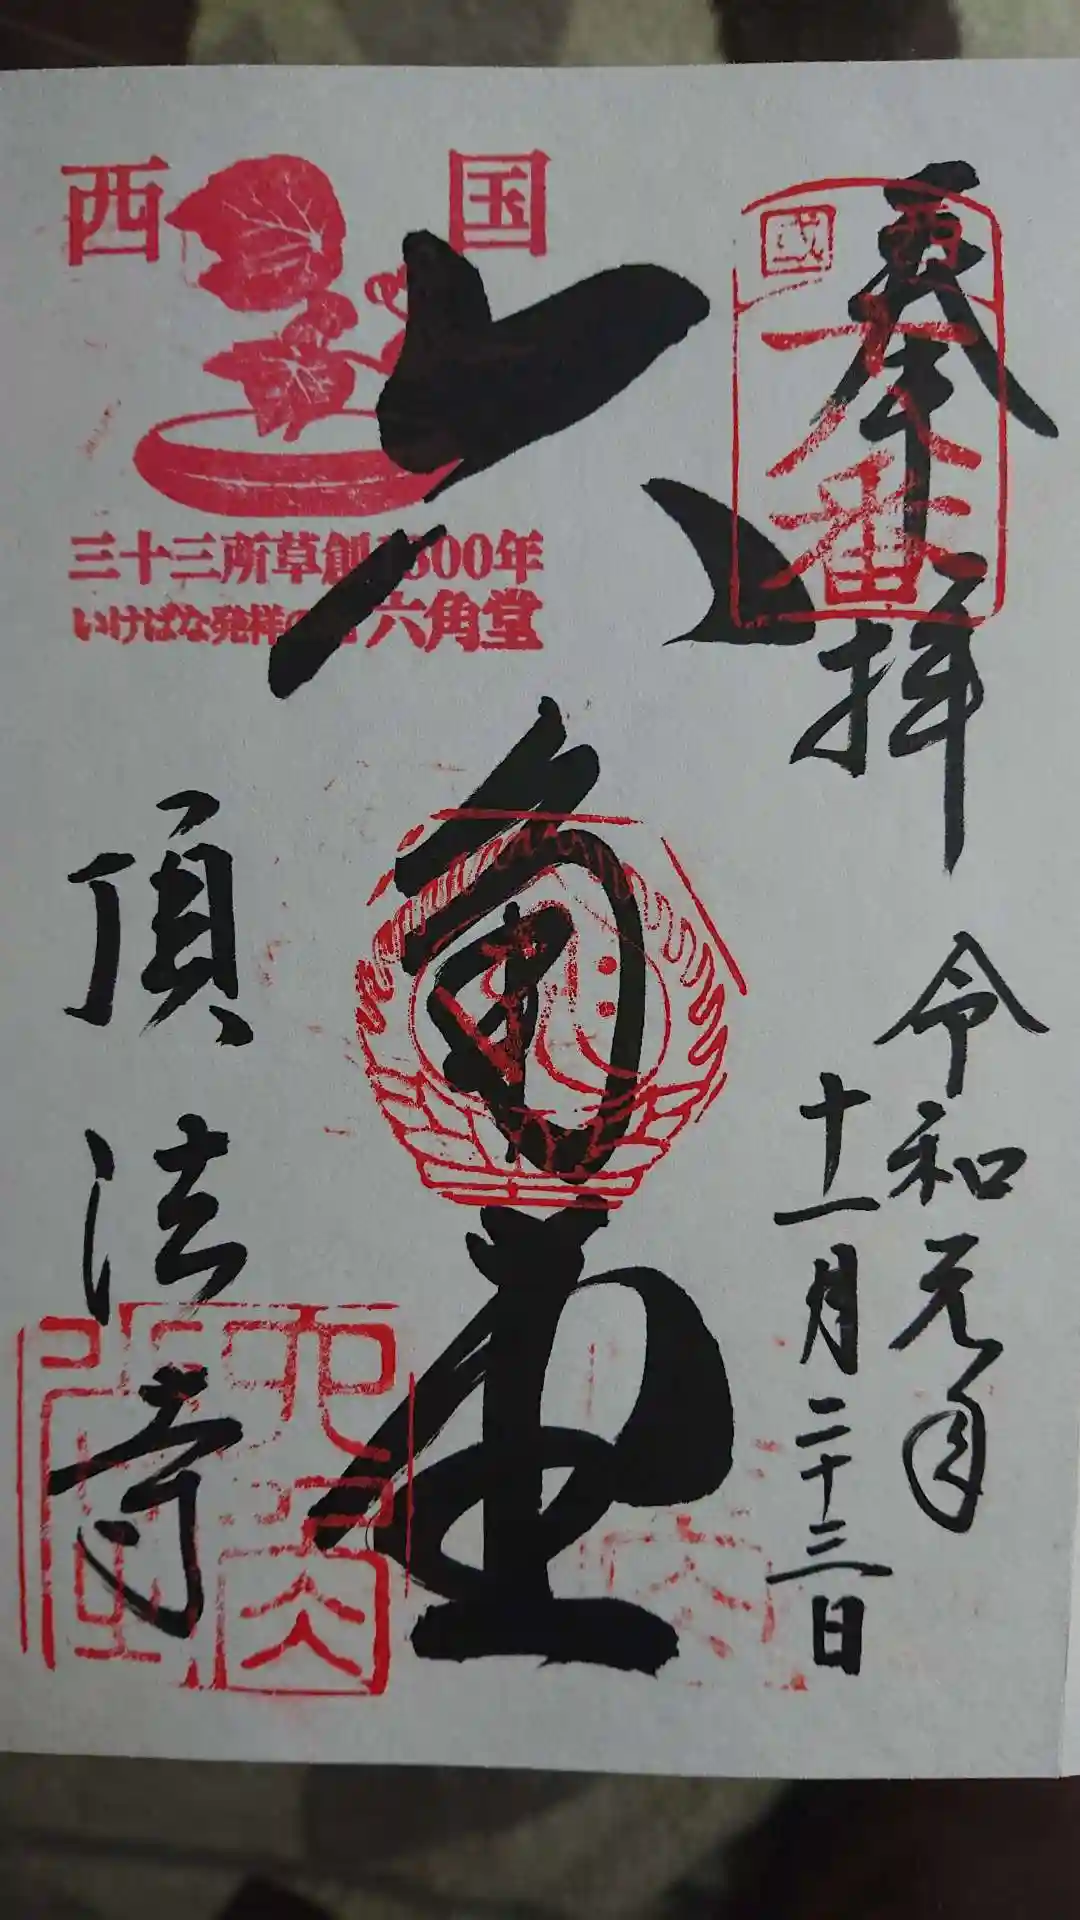 奉拝
西国
十八番
令和元年
十一月二十三日
六角堂
西国
三十三所草創1300年
いけばな発祥の地 六角堂
頂法寺